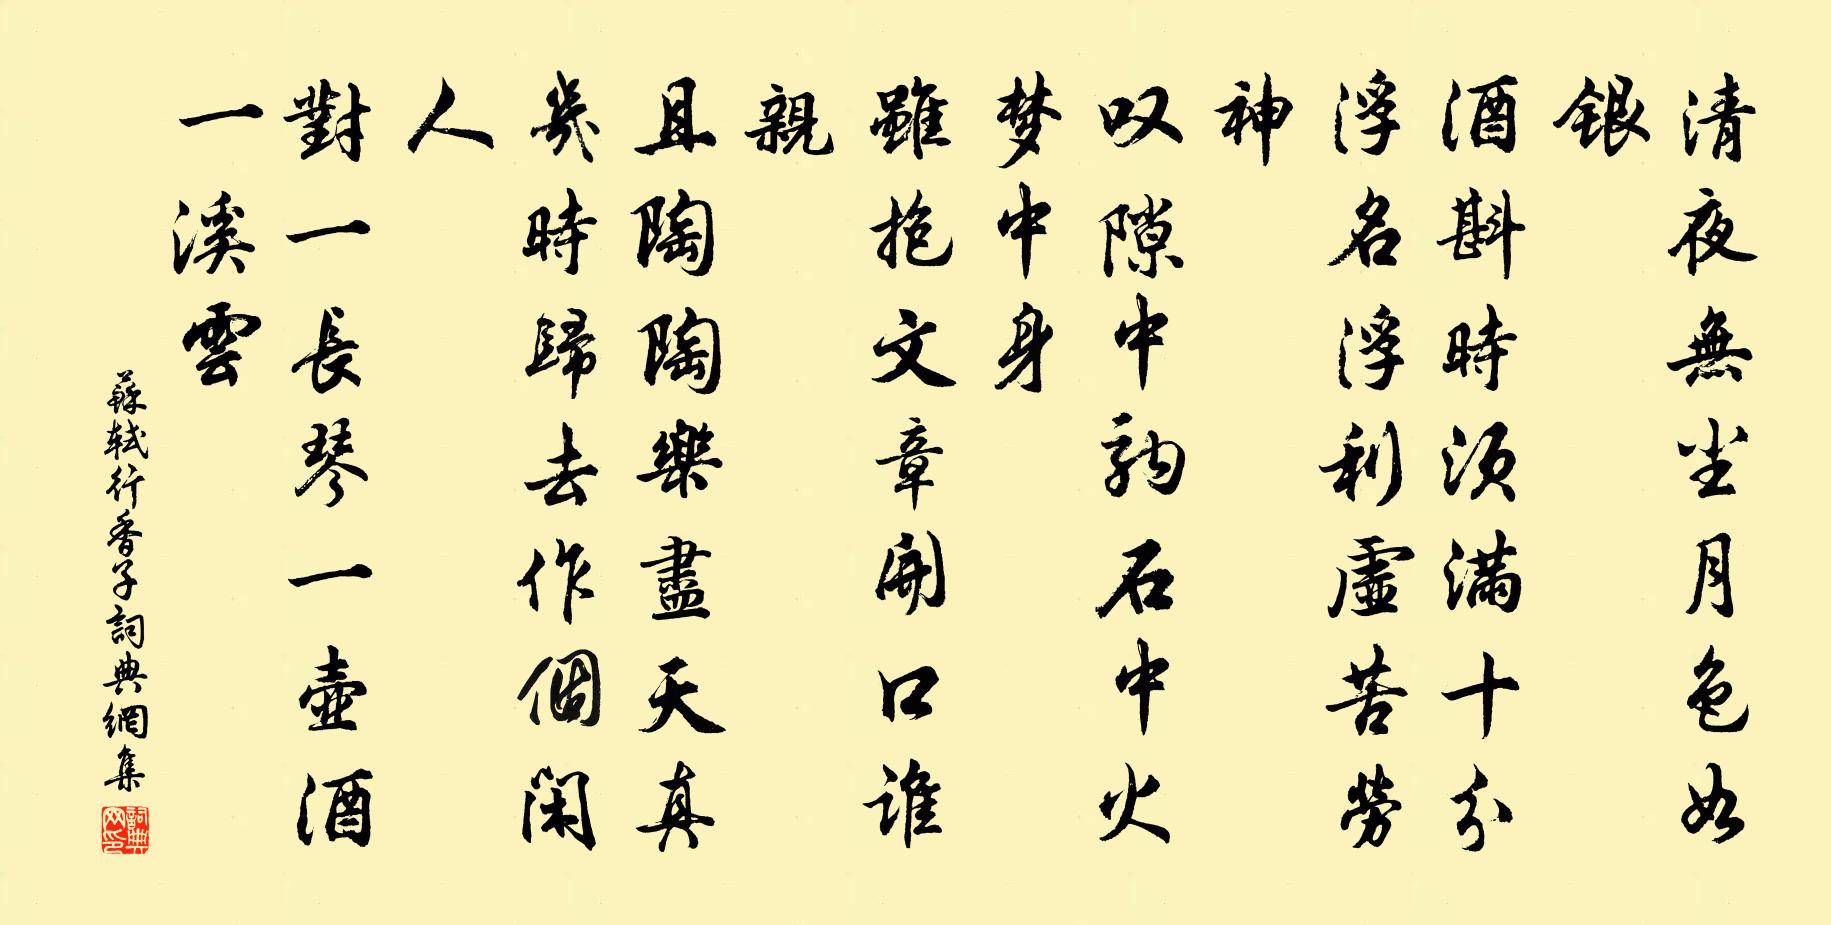 清夜無尘月色如
銀
酒斟時须满十分
浮名浮利虛苦勞
神
叹隙中駒石中火
梦中身
雖抱文章開口谁
親
且陶陶樂盡天真
幾時歸去作個閑
人
對一長琴一壺酒
一溪雲
蘇軾行香子詞典網集
詞典
网印